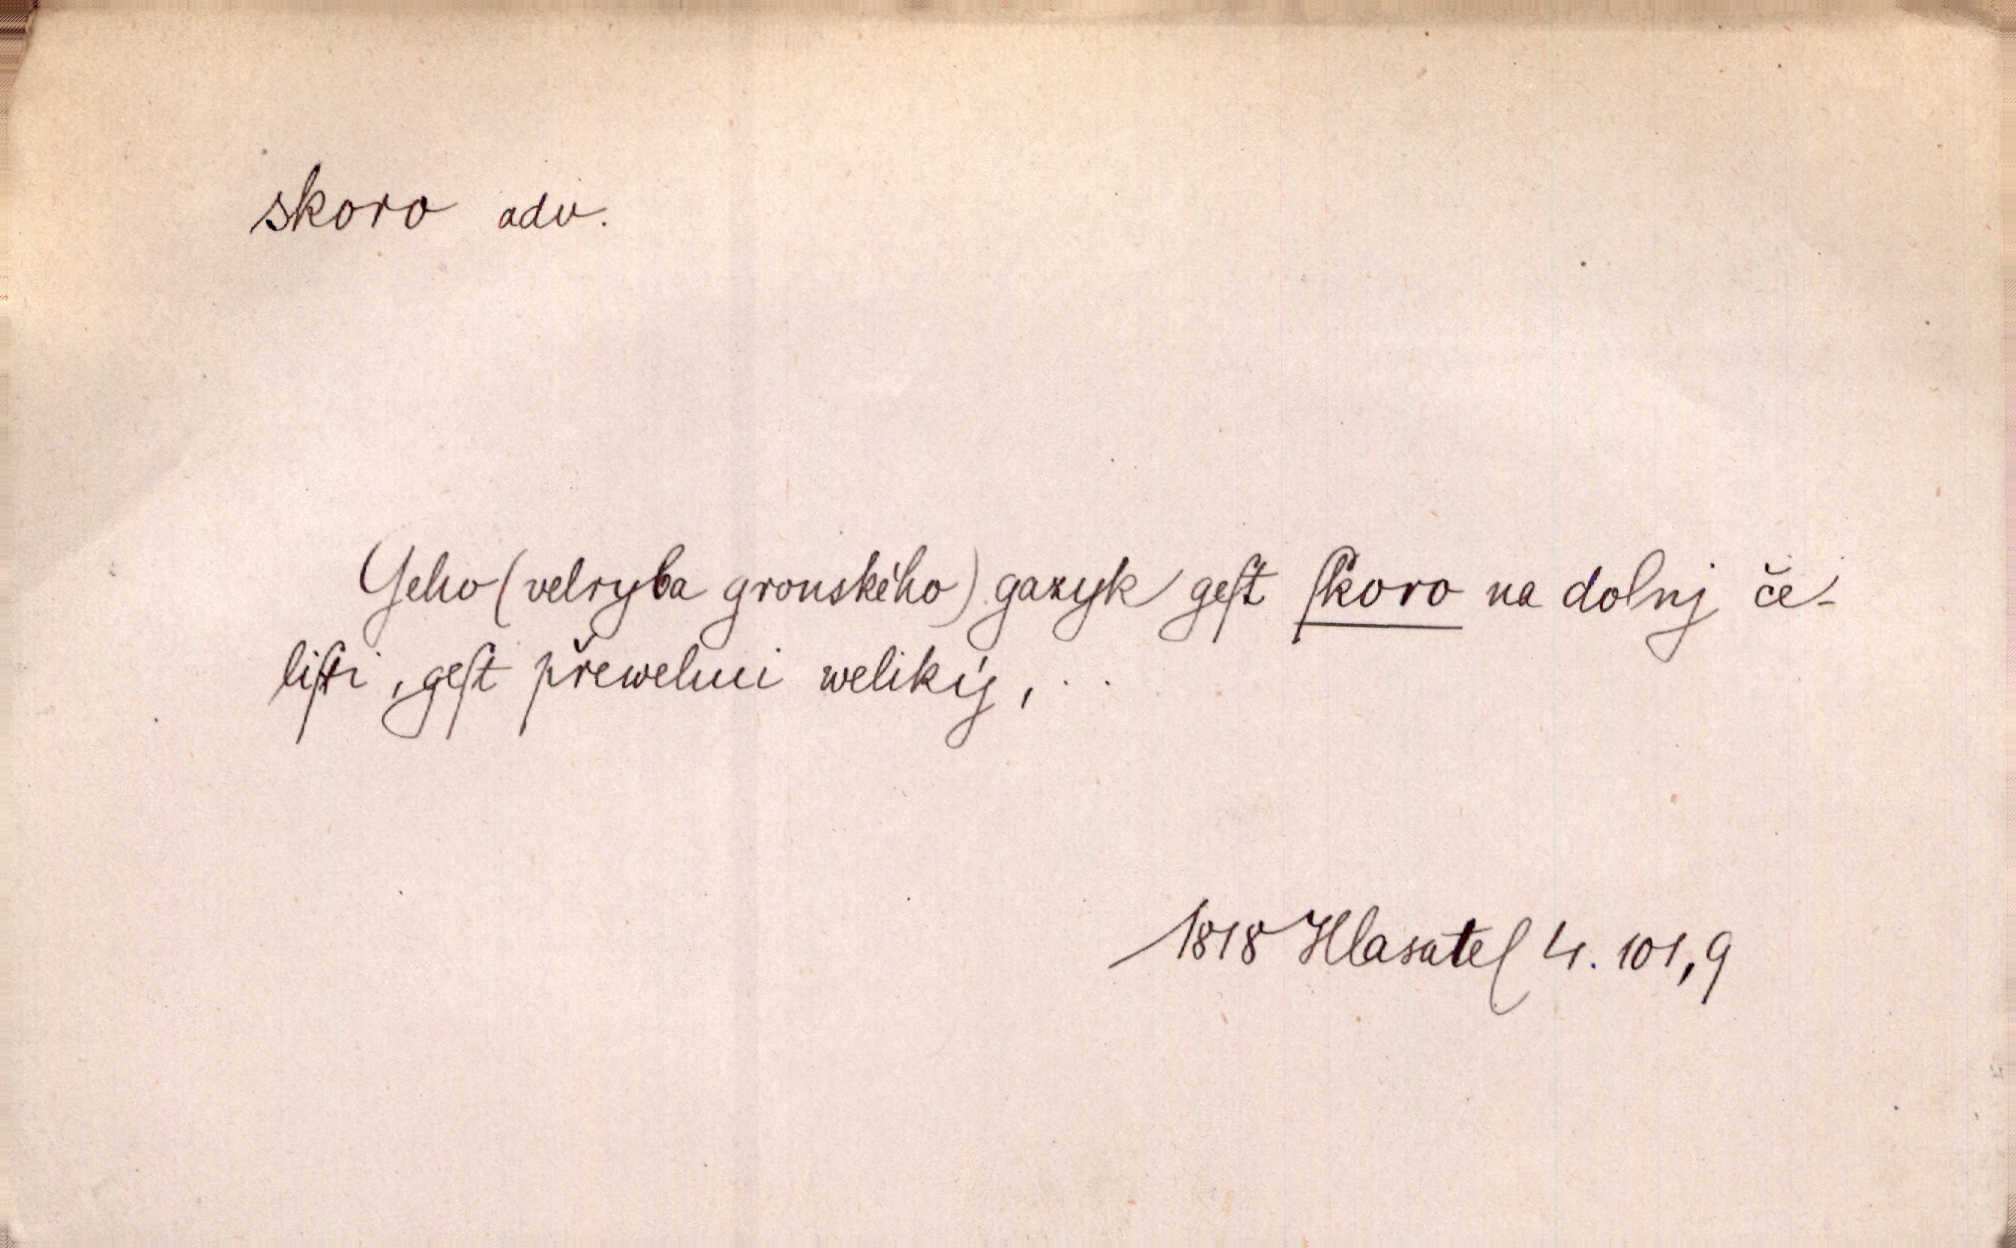 skoro adv.
Geho (velryba gronského) gazyk geſt ſkoro na dolnj če-
liſti, geſt přewelmi welikýg, ..
1818 Hlasatel 4. 101,9